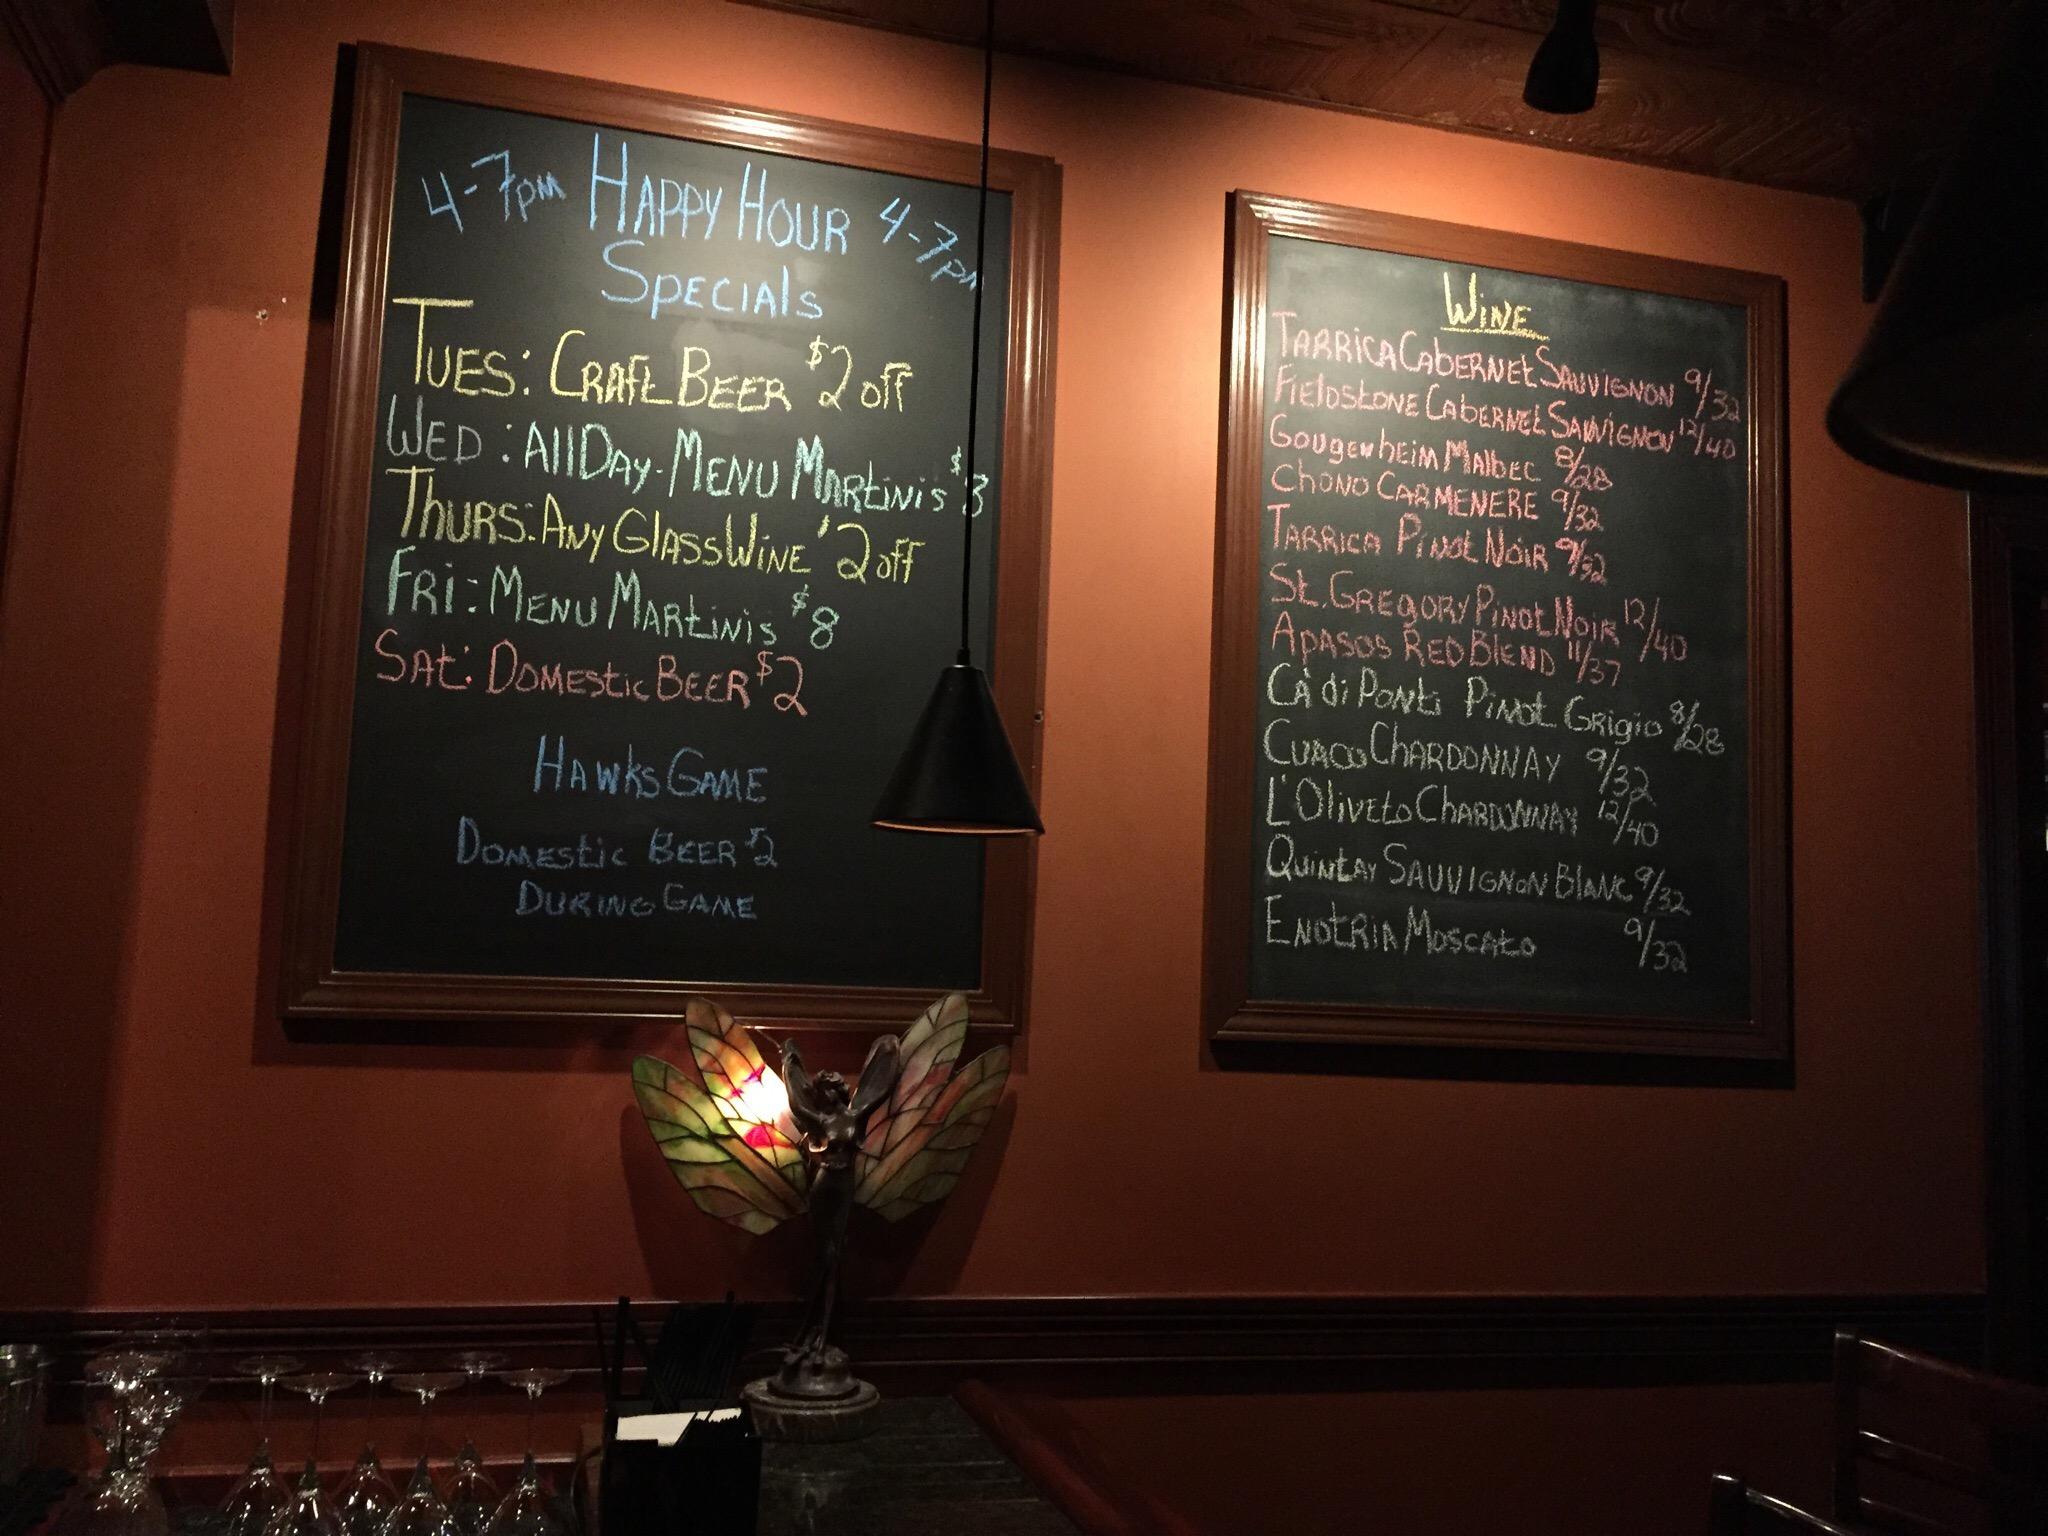 4-7pm HAPPY HOUR 4-7pm
SPECIAls
TUES: CRAFt BEER $2 off
WED: All DAY-MENU MARtinis $
THURS: ANY GLASS WINE $2 off
FRi: MENU MARtinis $8
SAt: DOMEStic BEER $2
HAWKS GAME
DOMEStic BEER $2
DURING GAME
WINE
TARRICA CabERNEt SAUVIGNON 9/32
FIEldStONE CAbERNEt SAUVIGNON 12/40
Gougenheim Malbec 8/28
CHONO CARMENERE 9/32
TARRICA PINOt NOIR 9/32
St. GREGORY PINOt NOIR 12/40
APASOS RED BlEND 11/37
CA' di PONti PiNot GRigio 8/28
CHARDONNAY 9/32
L'OlivEto CHARDONNAY 12/40
QuiNtAY SAUVIGNON BlANC 9/32
ENOtRIA MOSCAto 9/32